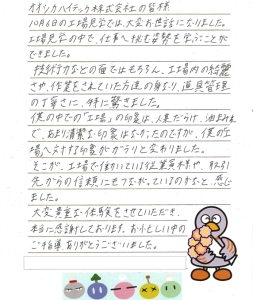 オオシカハイテック株式会社の皆様
10月6日の工場見学では、大変お世話になりました。
工場見学の中で、仕事へ挑む姿勢を学ぶことが
できました。
技術力などの面ではもちろん、工場内の綺麗
さや、作業をされていた方達の身なり、道具管理
の丁寧さに、特に驚きました。
僕の中での「工場」の印象は、人果だらけ、油まみれ
で、あまり清潔な印象はなかったのですが、僕の工
場へ対する印象がガラリと変わりました。
そこが、工場で働かれている従業員様や、取引
先からの信頼にもつながっているのかなと、感じ
ました。
大変貴重な体験をさせていただき、
本当に感謝しております。お忙しい中の
ご指導ありがとうございました。